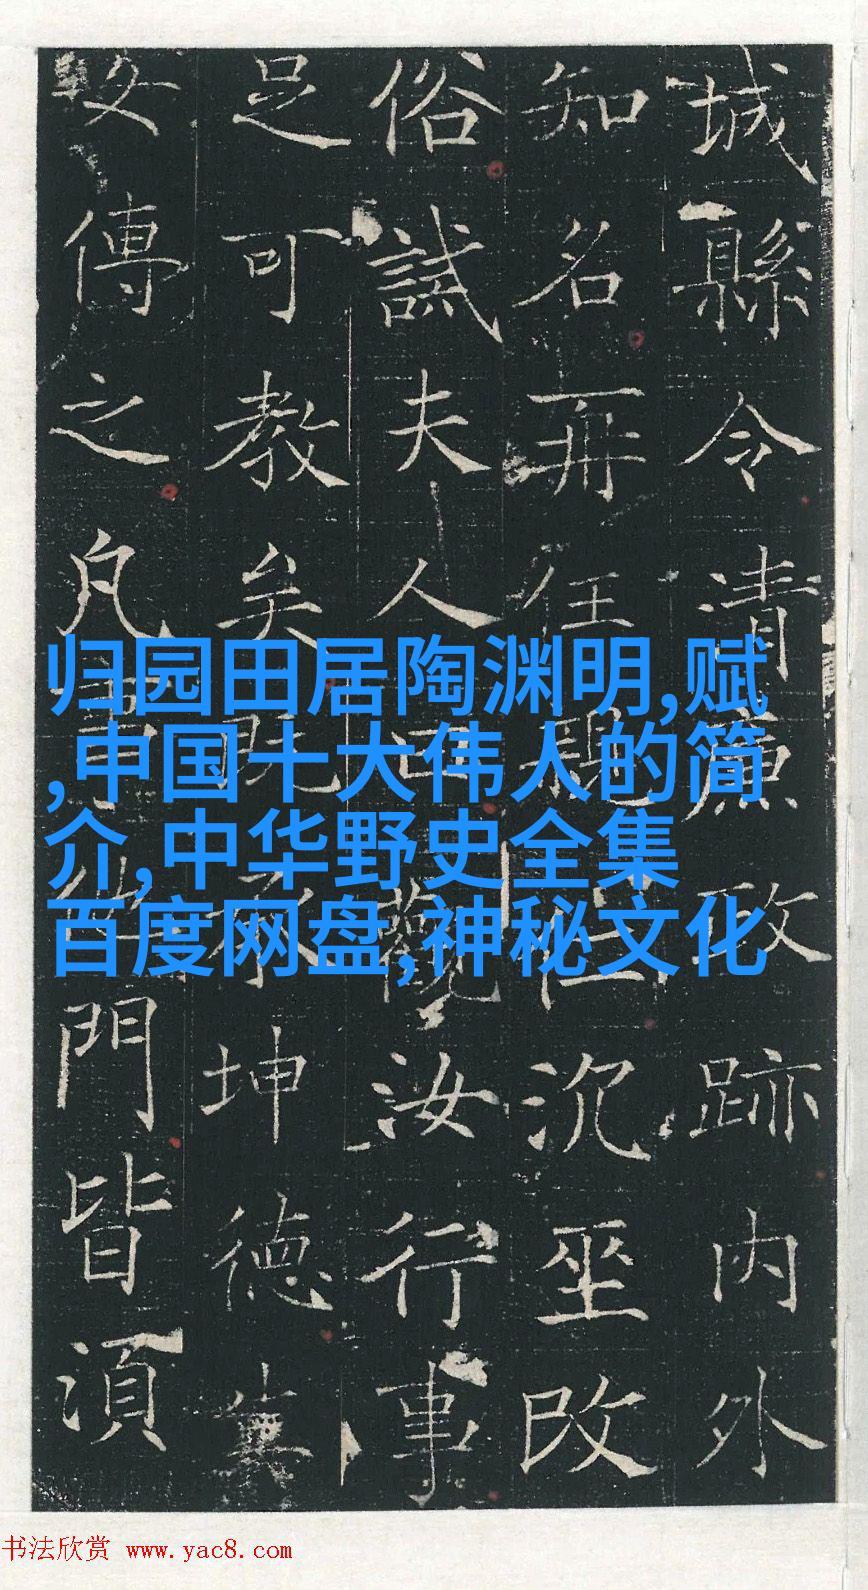 城縣令清廉政跡内外
知名再任魏沉坐改
俗試夫人觀汝行事
足可教矣既承坤德
傳之凡事門皆須
归园田居陶渊明,赋
,中国十大伟人的简
介,中华野史全集
百度网盘,神秘文化
书法欣赏 www.yac8.com